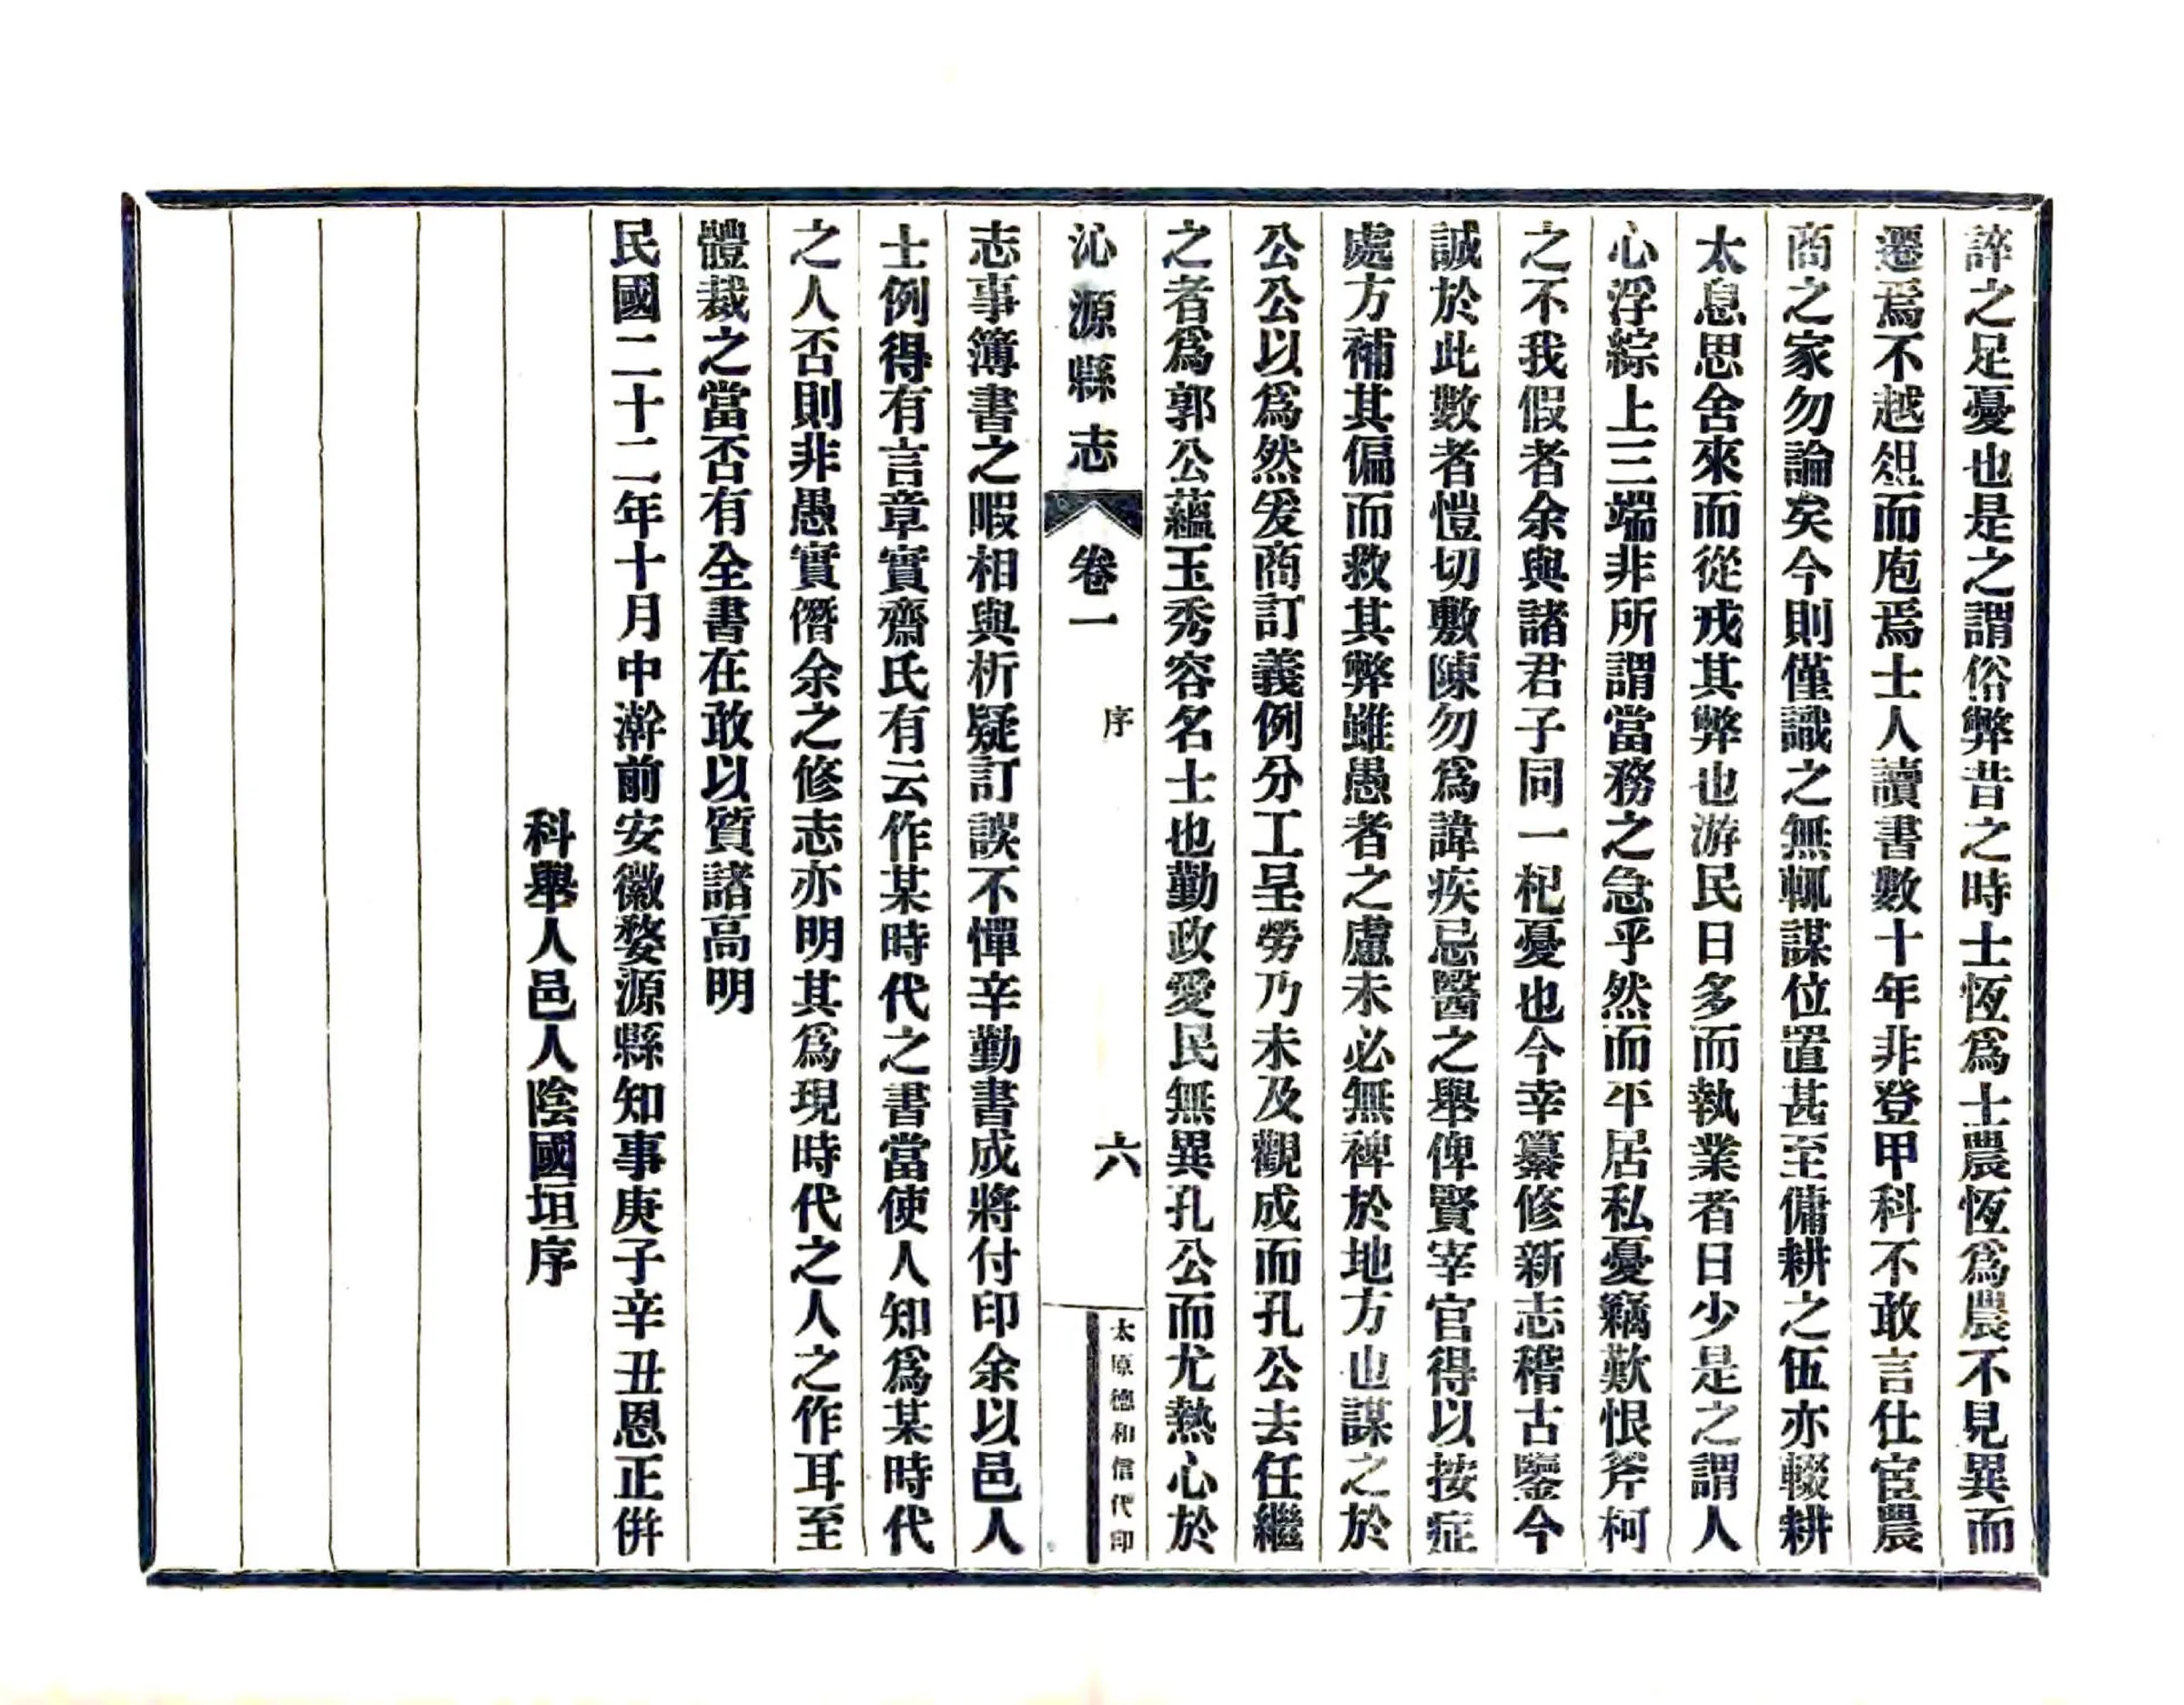 誶之足憂也是之謂俗弊昔之時士恆爲士農恆爲農不見異而
遷焉不越俎而庖焉士人讀書數十年非登甲科不敢言仕宦農
商之家勿論矣今則僅識之無輒謀位置甚至傭耕之伍亦輟耕
太息思舍來而從戎其弊也游民日多而執業者日少是之謂人
心浮綜上三端非所謂當務之急乎然而平居私憂竊歎恨斧柯
之不我假者余與諸君子同一杞憂也今幸纂修新志稽古鑒今
誠於此數者愷切敷陳勿爲諱疾忌醫之舉俾賢宰官得以按症
處方補其偏而救其弊雖愚者之慮未必無裨於地方也謀之於
公公以爲然爰商訂義例分工呈勞乃未及觀成而孔公去任繼
之者爲郭公蘊玉秀容名士也勤政愛民無異孔公而尤熱心於
沁源縣志 卷一 序 六 太原德和信代印
志事簿書之暇相與析疑訂誤不憚辛勤書成將付印余以邑人
士例得有言章實齋氏有云作某時代之書當使人知爲某時代
之人否則非愚實僭余之修志亦明其爲現時代之人之作耳至
體裁之當否有全書在敢以質諸高明
民國二十二年十月中澣前安徽婺源縣知事庚子辛丑恩正併
科舉人邑人陰國垣序